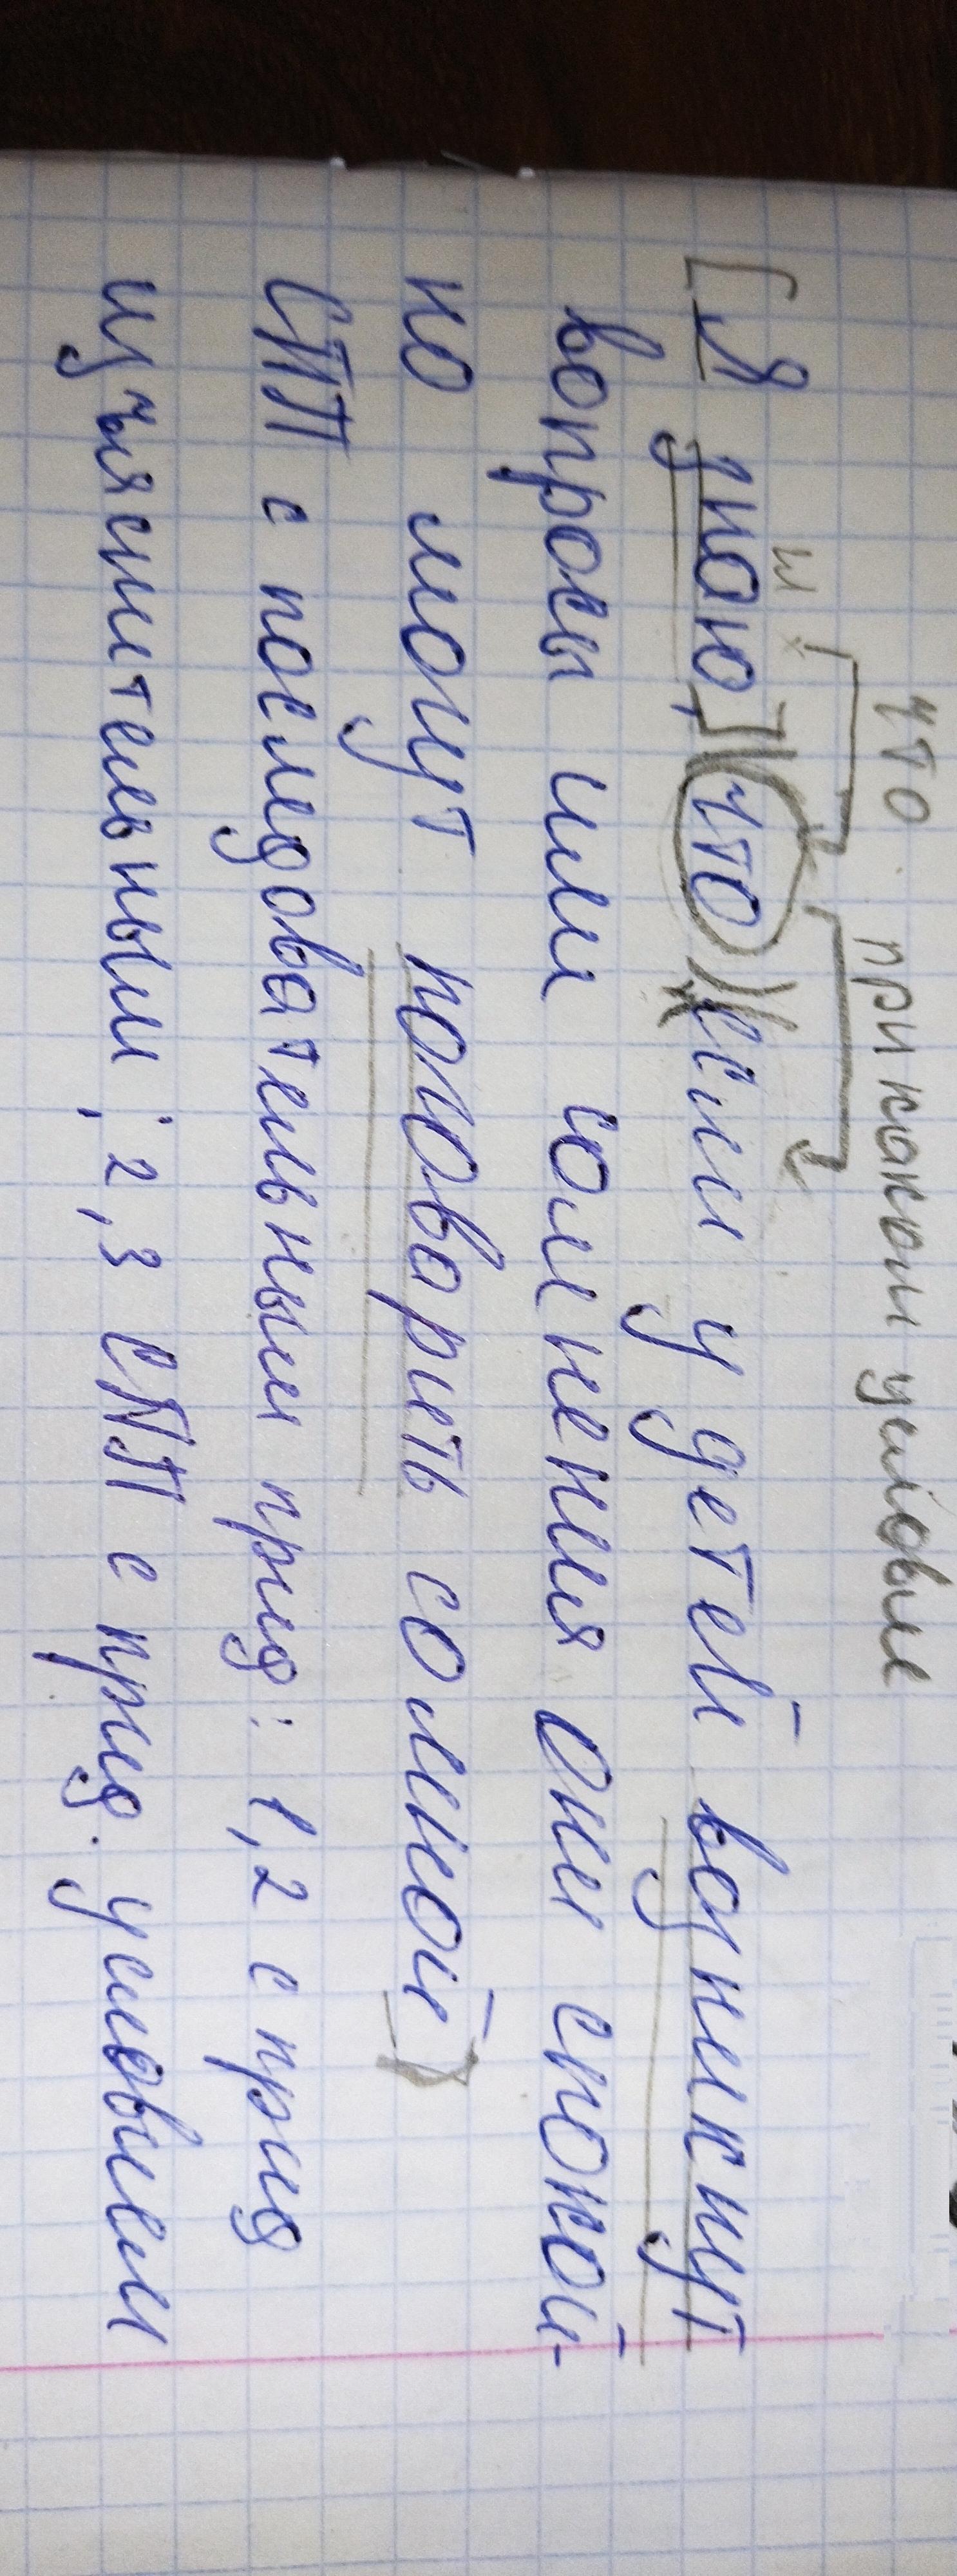 что при каком условие
и
[Я знаю,] (что) (если у детей возникнут
вопросы или сомнения они спокой-
но могут поговорить со мной)
СПП с последовательным прид: 1,2 с прид
изъяснительным; 2,3 СПП с прид. условием